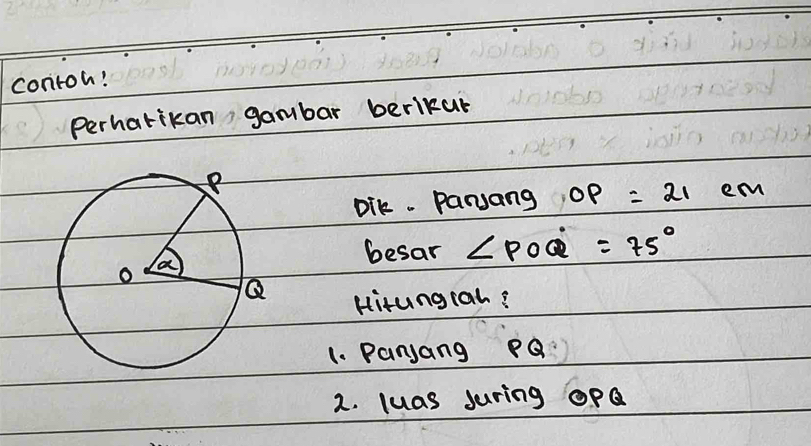 contoh!
Perhatikan gambar berikut
P
O α
Q
Dik. Panjang OP = 21 cm
besar ∠POQ = 75°
Hitunglah :
1. Panjang PQ
2. luas juring OPQ